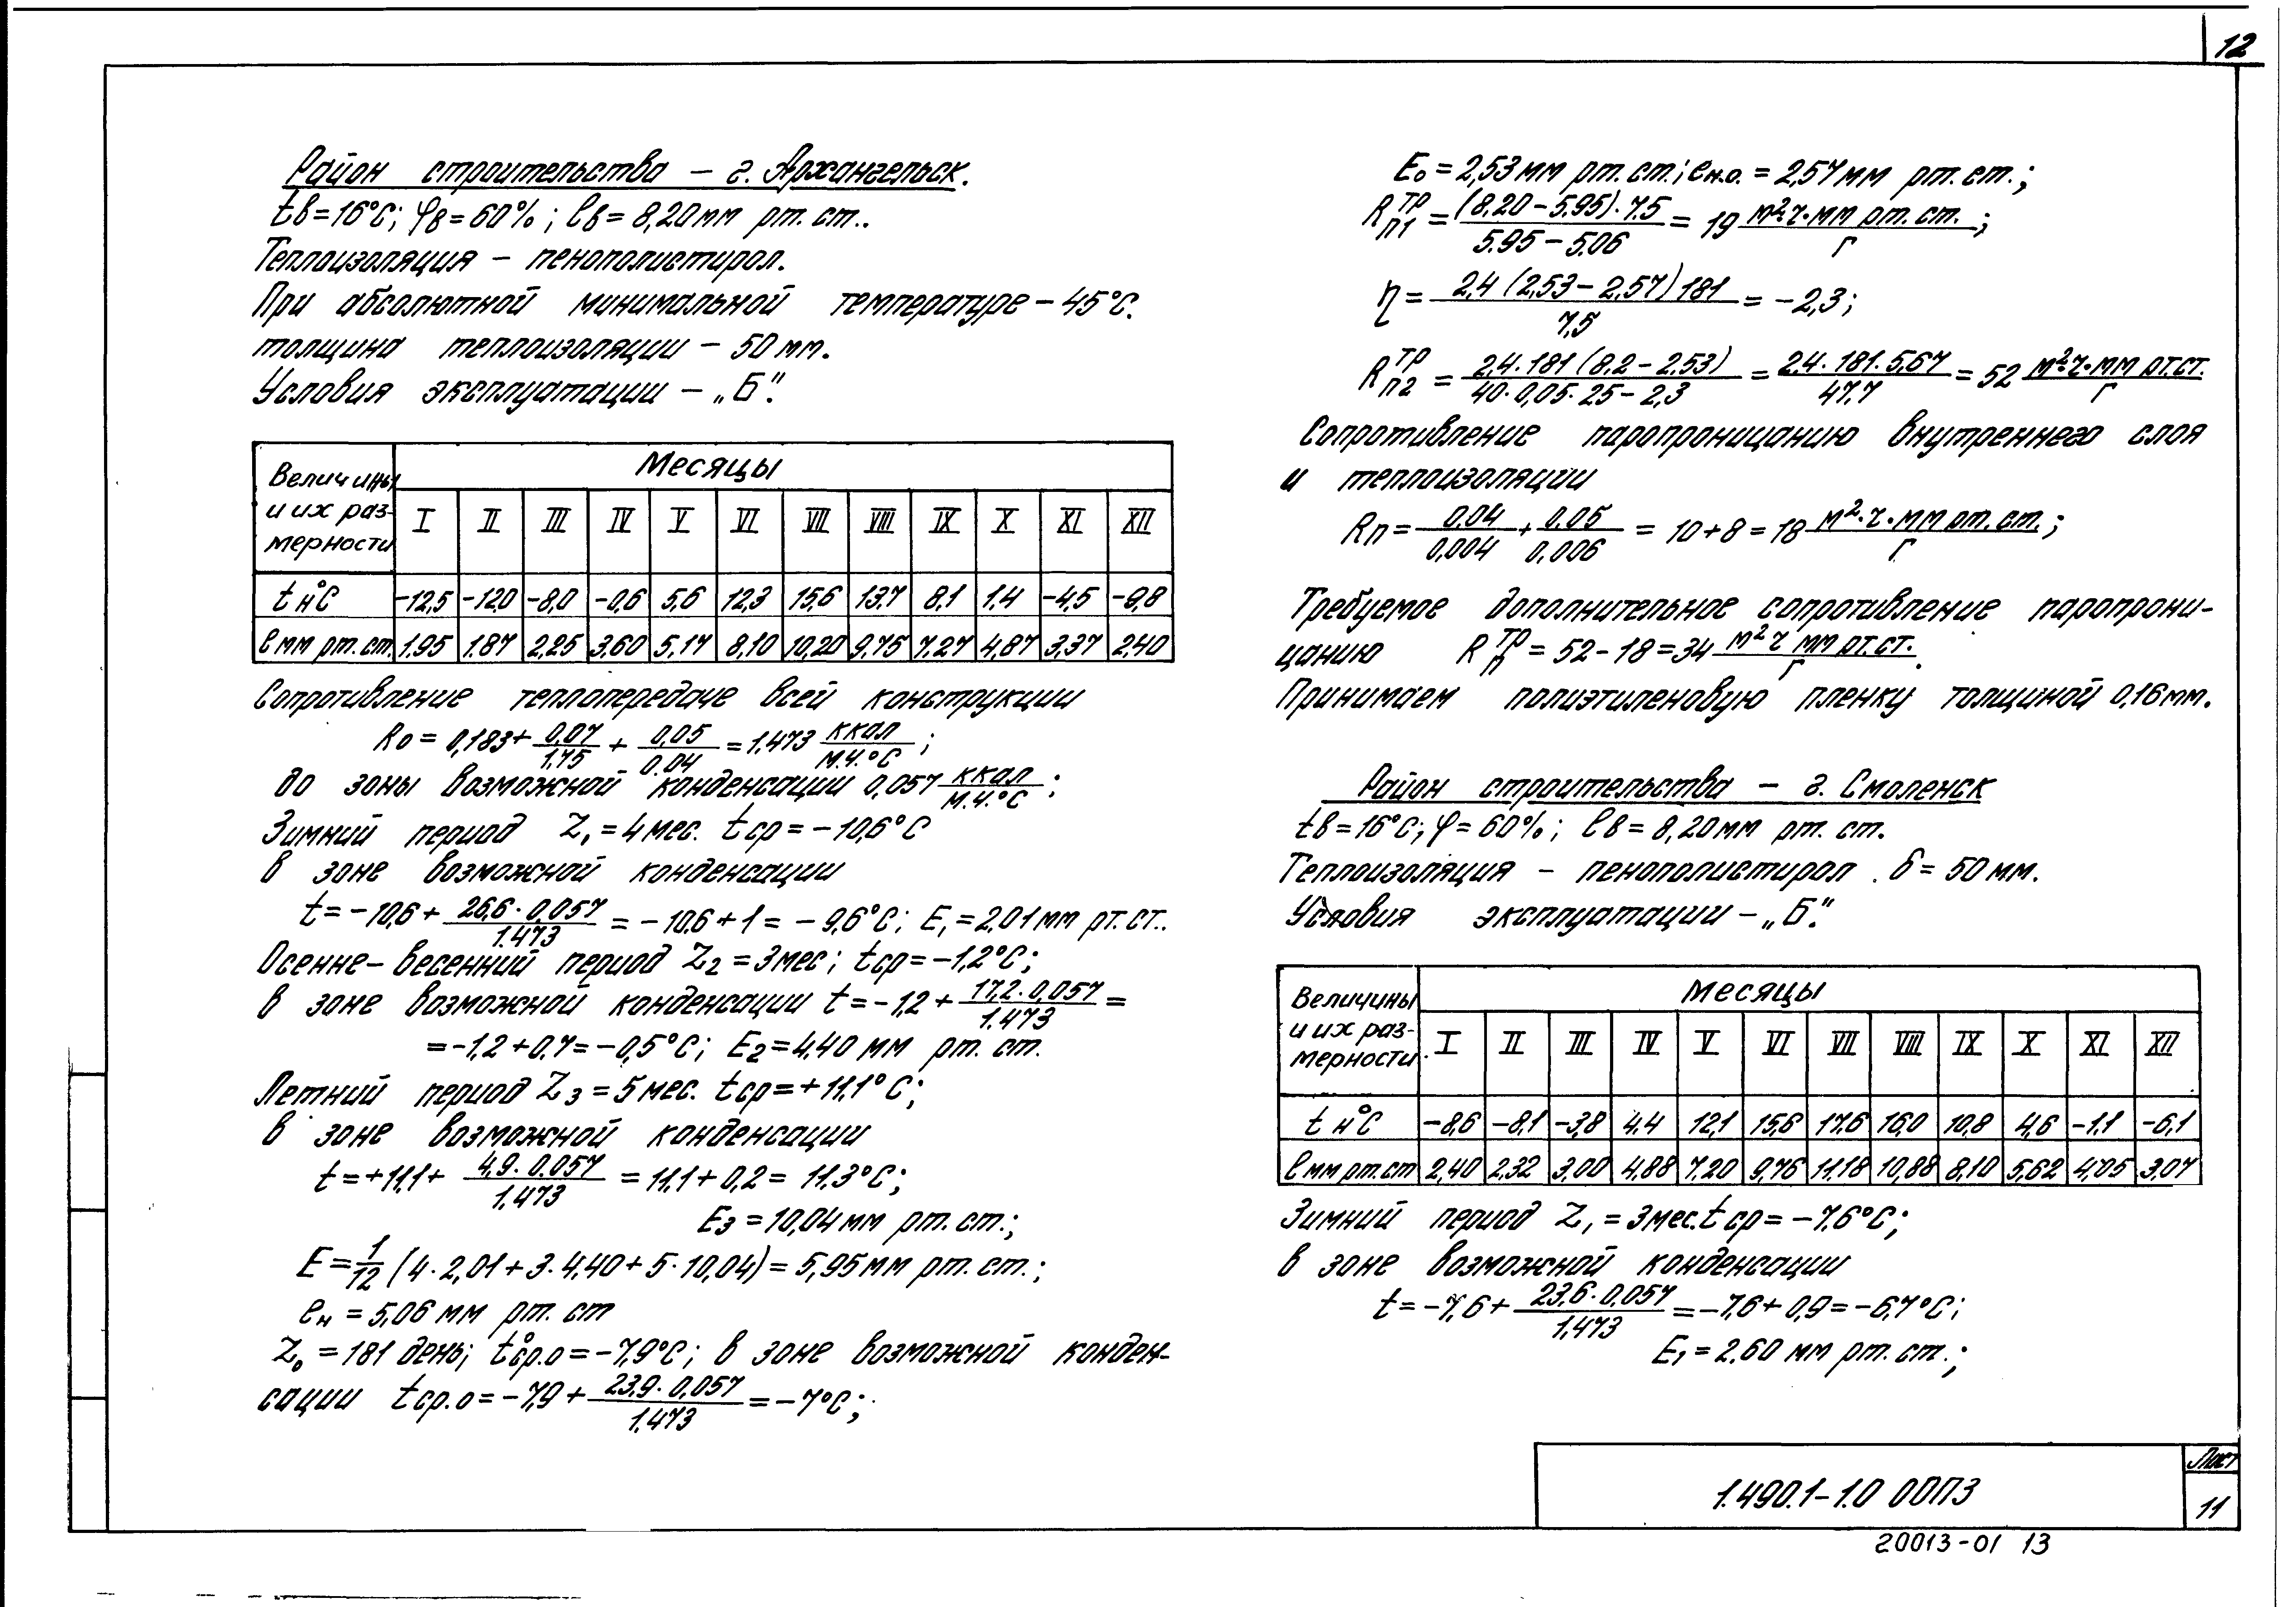 12
Район строительства – г. Архангельск.
tв = 16°С; φв = 60%; eв = 8,20 мм рт. ст..
Теплоизоляция – пенополистирол.
При абсолютной минимальной температуре – 45°С.
толщина теплоизоляции – 50 мм.
Условия эксплуатации – „Б".
Величины и их размерности | Месяцы
I | II | III | IV | V | VI | VII | VIII | IX | X | XI | XII
tн°С | -12,5 | -12,0 | -8,0 | -0,6 | 5,6 | 12,3 | 15,6 | 13,7 | 8,1 | 1,4 | -4,5 | -9,8
e мм рт. ст. | 1.95 | 1.87 | 2,25 | 3,60 | 5,17 | 8,10 | 10,20 | 9,75 | 7,27 | 4,87 | 3,37 | 2,40
Сопротивление теплопередаче всей конструкции
Rо = 0,183 + 0,07/1,75 + 0,05/0.04 = 1.473 ккал/м.ч.°С ;
до зоны возможной конденсации 0,057 ккал/м.ч.°С ;
Зимний период Z₁ = 4 мес. tср = – 10,6°С
в зоне возможной конденсации
t = – 10,6 + 26,6 · 0,057/1.473 = – 10,6 + 1 = – 9,6°С; E₁ = 2,01 мм рт. ст..
Осенне-весенний период Z₂ = 3 мес; tср = –1,2°С;
в зоне возможной конденсации t = – 1,2 + 17,2 · 0,057/1.473 =
= –1,2 + 0,7 = –0,5°С; E₂ = 4,40 мм рт. ст.
Летний период Z₃ = 5 мес. tср = + 11,1°С;
в зоне возможной конденсации
t = + 11,1 + 4,9 · 0,057/1.473 = 11,1 + 0,2 = 11,3°С;
E₃ = 10,04 мм рт. ст.;
E = 1/12 (4 · 2,01 + 3 · 4,40 + 5 · 10,04) = 5,95 мм рт. ст.;
eн = 5,06 мм рт. ст
Z₀ = 181 день; tср.о = –7,9°С; в зоне возможной конден-
сации tср.о = – 7,9 + 23,9 · 0,057/1.473 = – 7°С;
E₀ = 2,53 мм рт. ст.; eн.о. = 2,57 мм рт. ст.;
Rп1ᵀᴾ = (8,20 – 5,95) · 7.5/5.95 – 5.06 = 19 м²·ч·мм рт. ст./г ;
η = 2,4 (2,53 – 2,57) 181/7,5 = – 2,3;
Rп2ᵀᴾ = 2,4 · 181 (8.2 – 2.53)/40 · 0,05 · 25 – 2,3 = 2,4 · 181 · 5,67/47,7 = 52 м²·ч·мм рт.ст./г
Сопротивление паропроницанию внутреннего слоя
и теплоизоляции
Rп = 0,04/0,004 + 0,05/0,006 = 10 + 8 = 18 м²·ч·мм рт. ст./г ;
Требуемое дополнительное сопротивление паропрони-
цанию Rпᵀᴾ = 52 – 18 = 34 м² ч мм рт.ст./г.
Принимаем полиэтиленовую пленку толщиной 0,16 мм.
Район строительства – г. Смоленск
tв = 16°С; φ = 60%; eв = 8,20 мм рт. ст.
Теплоизоляция – пенополистирол. δ = 50 мм.
Условия эксплуатации – „Б".
Величины и их размерности | Месяцы
I | II | III | IV | V | VI | VII | VIII | IX | X | XI | XII
tн°С | -8,6 | -8,1 | -3,8 | 4,4 | 12,1 | 15,6 | 17,6 | 16,0 | 10,8 | 4,6 | -1,1 | -6,1
e мм рт.ст | 2,40 | 2,32 | 3,00 | 4,88 | 7,20 | 9,76 | 11,18 | 10,88 | 8,10 | 5,62 | 4,05 | 3,07
Зимний период Z₁ = 3 мес. tср = – 7,6°С;
в зоне возможной конденсации
t = – 7,6 + 23,6 · 0,057/1,473 = – 7,6 + 0,9 = – 6,7°С;
E₁ = 2,60 мм рт. ст.;
1.490.1-1.0 00ПЗ
Лист
11
20013-01 13